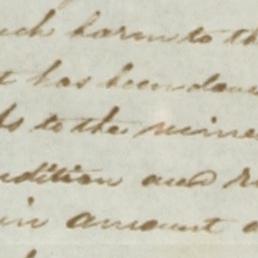 uch harm to th
t has been done
ds to the mine
ndition and r
in amount o